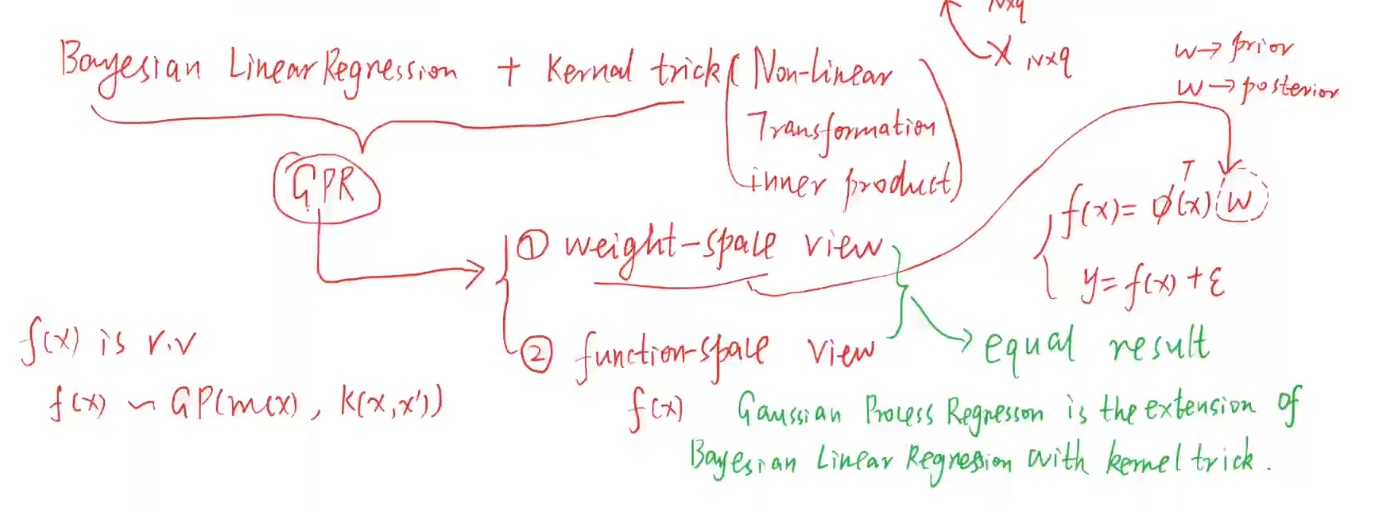 N×q
X N×q
Bayesian Linear Regression + Kernal trick ( Non-Linear
Transformation
inner product)
w → prior
w → posterior
GPR
f(x) = ϕ(x)ᵀ w
y = f(x) + ε
① weight-space view
② function-space view
equal result
f(x) is r.v
f(x) ~ GP(m(x), K(x,x'))
f(x)
Gaussian Process Regresson is the extension of
Bayesian Linear Regression with kernel trick.